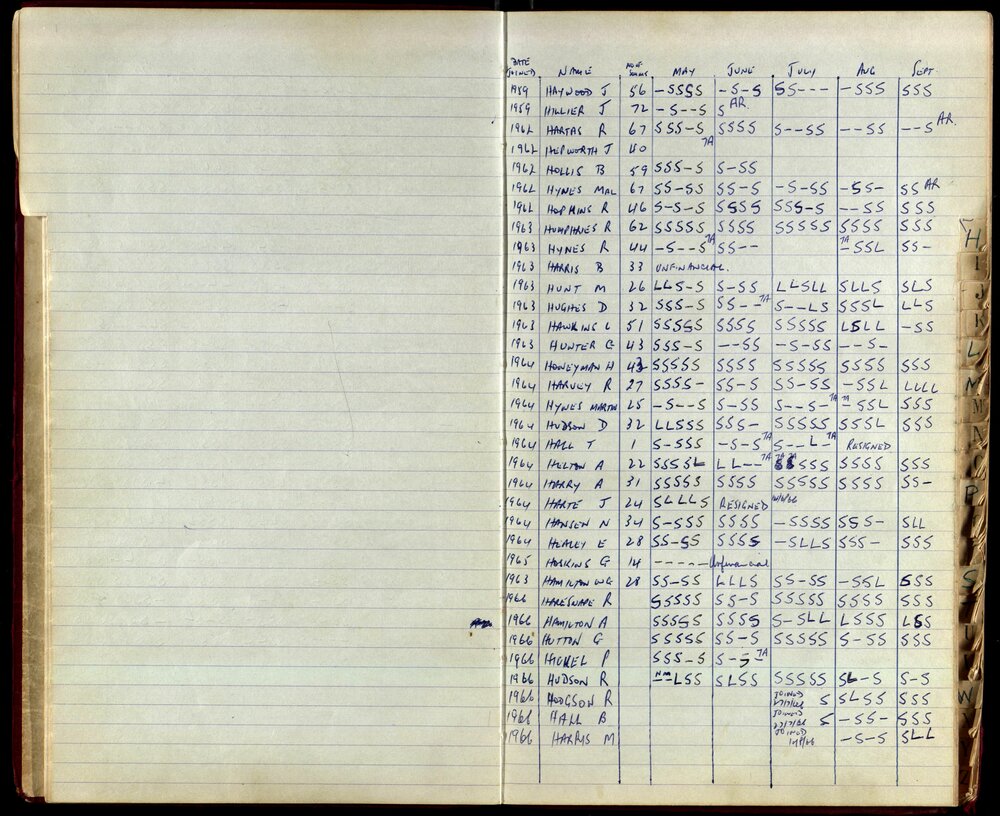 DATE JOINED NAME NO OF MAY JUNE JULY AUG SEPT
1959 HAYWOOD J 56 -SSSS -S-S SS--- -SSS SSS
1959 HILLIER J 72 -S--S S AR
1962 HARTAS R 67 SSS-S SSSS S--SS --SS --S AR.
1962 HEPWORTH J 40 7A
1962 HOLLIS B 59 SSS-S S-SS
1962 HYNES MAL 67 SS-SS SS-S -S-SS -SS- SS AR
1962 HOPKINS R 46 S-S-S SSSS SSS-S --SS SSS
1963 HUMPHRIES R 62 SSSSS SSSS SSSSS SSSS SSS
1963 HYNES R 44 -S--S 7A SS-- 7A -SSL SS-
1963 HARRIS B 33 UNFINANCIAL.
1963 HUNT M 26 LLS-S S-SS LLSLL SLLS SLS
1963 HUGHES D 32 SSS-S SS-- 7A S--LS SSSL LLS
1963 HAWKINS L 51 SSSSS SSSS SSSSS LSLL -SS
1963 HUNTER G 43 SSS-S --SS -S-SS --S-
1964 HONEYMAN H 42 SSSSS SSSS SSSSS SSSS SSS
1964 HARVEY R 27 SSSS- SS-S SS-SS -SSL LLLL
1964 HYNES MARTIN 25 -S--S S-SS S--S- 7A 7A -SSL SSS
1964 HUDSON D 32 LLSSS SSS- SSSSS SSSL SSS
1964 HALL T 1 S-SSS -S-S 7A S--L- 7A RESIGNED
1964 HELTON A 22 SSSSL LL-- 7A 7A SSSS SSSS SSS
1964 HARRY A 31 SSSSS SSSS SSSSS SSSS SS-
1964 HARTE J 24 SLLLS RESIGNED
1964 HANSEN N 34 S-SSS SSSS -SSSS SSS- SLL
1964 HEALEY E 28 SS-SS SSSS -SLLS SSS- SSS
1965 HOSKINS G 14 ----- Unfinancial
1963 HAMILTON WG 28 SS-SS LLLS SS-SS -SSL SSS
1966 HARESNAPE R SSSSS SS-S SSSSS SSSS SSS
1966 HAMILTON A SSSSS SSSS S-SLL LSSS LSS
1966 HUTTON G SSSSS SS-S SSSSS S-SS SSS
1966 HICKEL P SSS-S S-S- 7A
1966 HUDSON R NM --LSS SLSS SSSSS SL-S S-S
1966 HODGSON R JOINED 27/7/66 S SLSS SSS
1966 HALL B JOINED 27/7/66 S -SS- SSS
1966 HARRIS M JOINED -S-S SLL
H
I
J
K
L
M
N
P
S
U
W